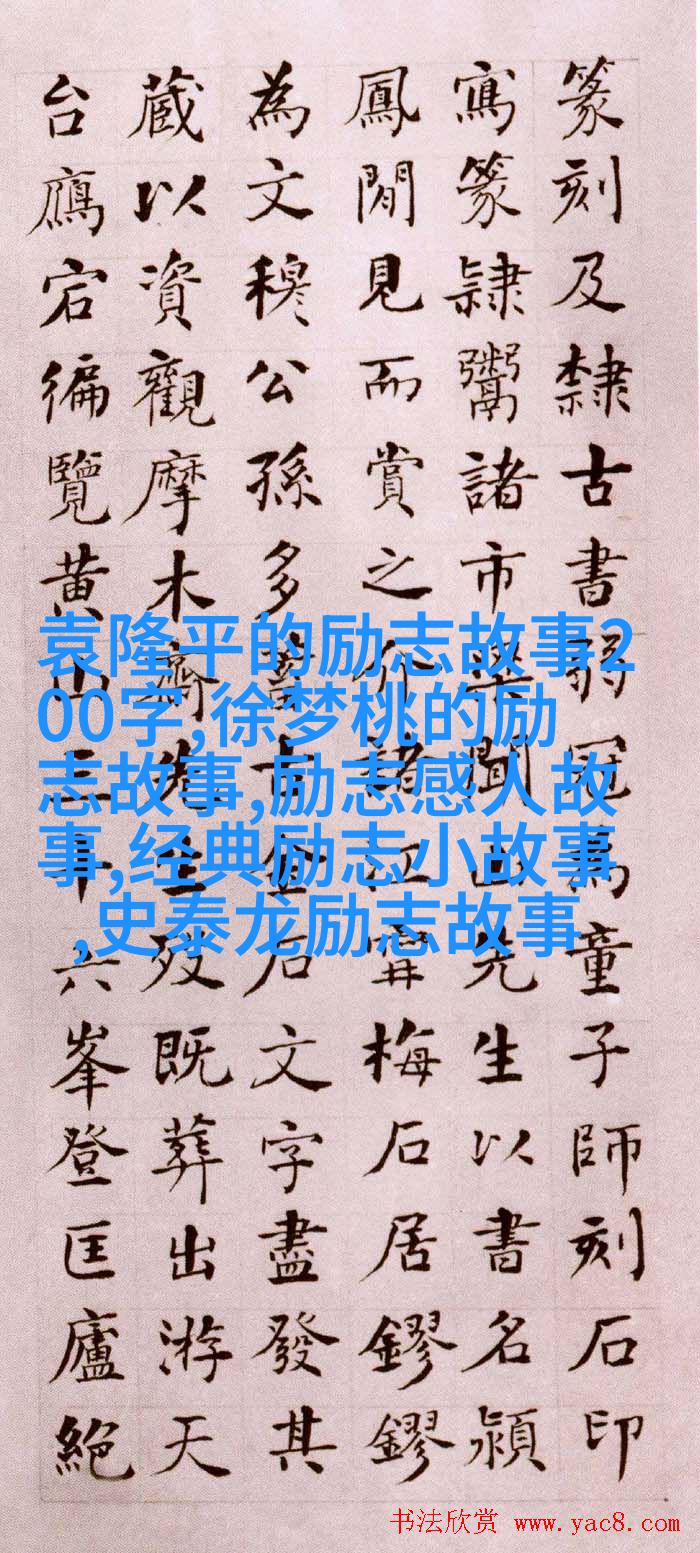 篆刻及隸古書弱冠為童子師刻石印
寫篆隸鬻諸市梁聞山先生以書名潁
鳳閒見而賞之介諸江甯梅石居鏐鏐
為文穆公孫多蓄古金石文字盡發其
蔵以資觀摩木齋先生歿既葬出游天
台鴈宕徧覽黃山三十六峯登匡廬絕
袁隆平的励志故事2
00字,徐梦桃的励
志故事,励志感人故
事,经典励志小故事
,史泰龙励志故事
书法欣赏 www.yac8.com